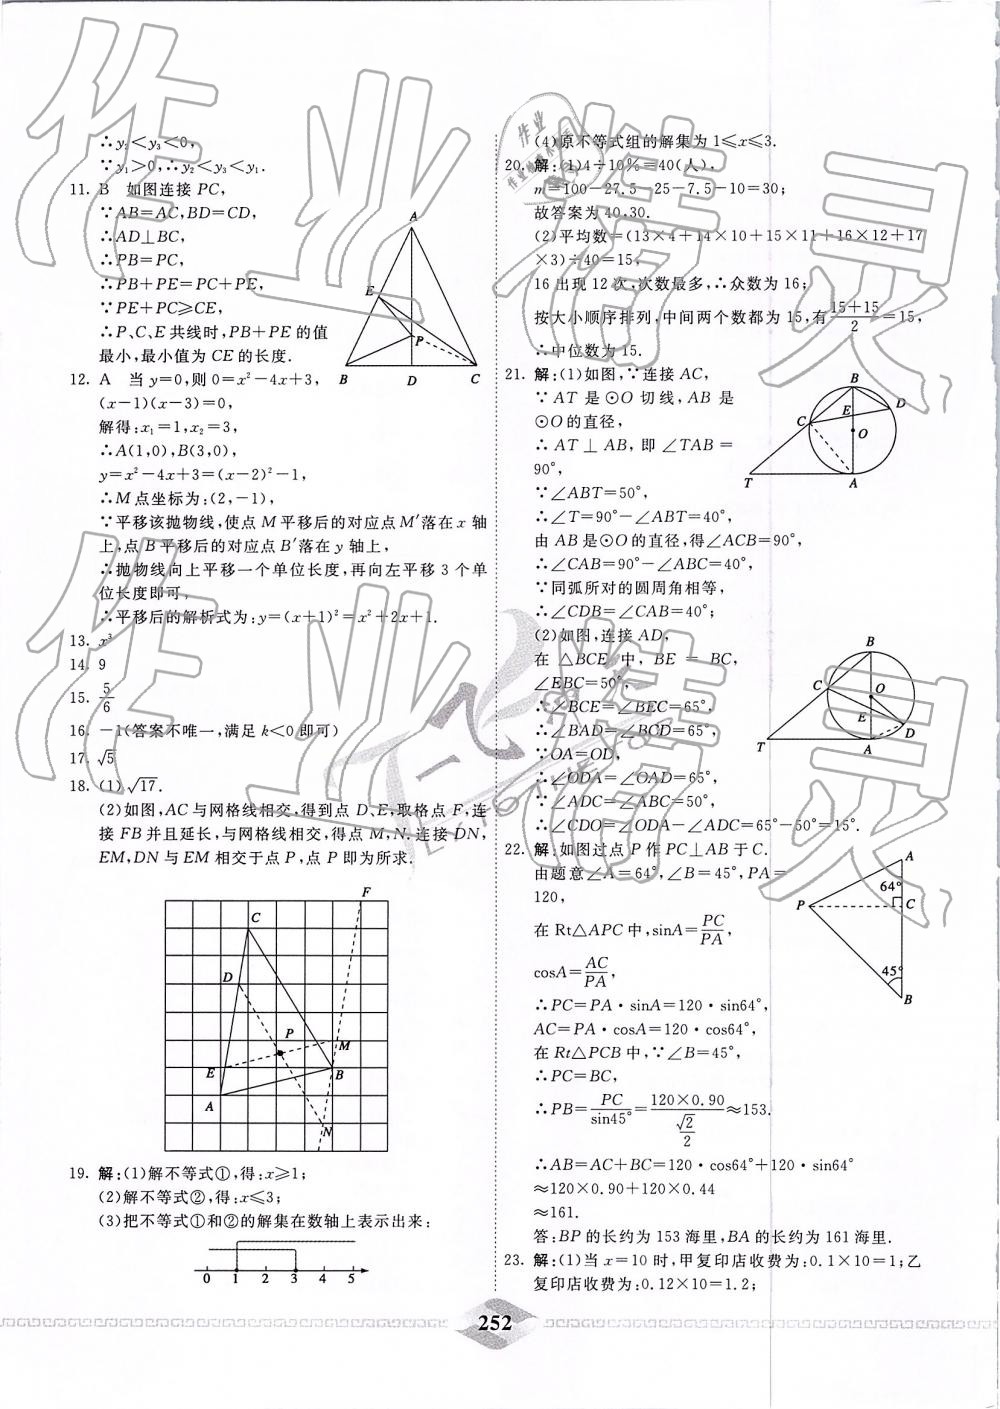 ∴y₂<y₃<0,
∵y₁>0,∴y₂<y₃<y₁.
11. B 如图连接 PC,
∵AB=AC,BD=CD,
∴AD⊥BC,
∴PB=PC,
∴PB+PE=PC+PE,
∵PE+PC⩾CE,
∴P、C、E 共线时,PB+PE 的值
最小,最小值为 CE 的长度.
A
E
P
B
D
C
12. A 当 y=0,则 0=x²-4x+3,
(x-1)(x-3)=0,
解得:x₁=1,x₂=3,
∴A(1,0),B(3,0),
y=x²-4x+3=(x-2)²-1,
∴M 点坐标为:(2,-1),
∵平移该抛物线,使点 M 平移后的对应点 M′落在 x 轴
上,点 B 平移后的对应点 B′落在 y 轴上,
∴抛物线向上平移一个单位长度,再向左平移 3 个单
位长度即可,
∴平移后的解析式为:y=(x+1)²=x²+2x+1.
13. x³
14. 9
15. 5/6
16. -1(答案不唯一,满足 k<0 即可)
17. √5
18. (1)√17.
(2)如图,AC 与网格线相交,得到点 D、E,取格点 F,连
接 FB 并且延长,与网格线相交,得点 M,N. 连接 DN,
EM,DN 与 EM 相交于点 P,点 P 即为所求.
F
C
D
P
M
E
B
A
N
19. 解:(1)解不等式①,得:x⩾1;
(2)解不等式②,得:x⩽3;
(3)把不等式①和②的解集在数轴上表示出来:
0 1 2 3 4 5
(4)原不等式组的解集为 1⩽x⩽3.
20. 解:(1)4÷10%=40(人),
m=100-27.5-25-7.5-10=30;
故答案为 40,30.
(2)平均数=(13×4+14×10+15×11+16×12+17
×3)÷40=15,
16 出现 12 次,次数最多,∴众数为 16;
按大小顺序排列,中间两个数都为 15,有(15+15)/2=15,
∴中位数为 15.
21. 解:(1)如图,∵连接 AC,
∵ AT 是 ⊙O 切线,AB 是
⊙O 的直径,
∴ AT ⊥ AB, 即 ∠TAB =
90°,
∵∠ABT=50°,
∴∠T=90°-∠ABT=40°,
由 AB 是⊙O 的直径,得∠ACB=90°,
∴∠CAB=90°-∠ABC=40°,
∵同弧所对的圆周角相等,
∴∠CDB=∠CAB=40°;
B
D
C
E
O
T
A
(2)如图,连接 AD,
在 △BCE 中, BE = BC,
∠EBC=50°,
∴∠BCE=∠BEC=65°,
∴∠BAD=∠BCD=65°,
∵OA=OD,
∴∠ODA=∠OAD=65°,
∵∠ADC=∠ABC=50°,
∴∠CDO=∠ODA-∠ADC=65°-50°=15°.
B
C
O
E
D
T
A
22. 解:如图过点 P 作 PC⊥AB 于 C.
由题意∠A=64°,∠B=45°,PA=
120,
在 Rt△APC 中,sinA=PC/PA,
cosA=AC/PA,
∴PC=PA·sinA=120·sin64°,
AC=PA·cosA=120·cos64°,
在 Rt△PCB 中,∵∠B=45°,
∴PC=BC,
∴PB=PC/sin45°=(120×0.90)/(√2/2)≈153.
∴AB=AC+BC=120·cos64°+120·sin64°
≈120×0.90+120×0.44
≈161.
答:BP 的长约为 153 海里,BA 的长约为 161 海里.
A
64°
P
C
45°
B
23. 解:(1)当 x=10 时,甲复印店收费为:0.1×10=1;乙
复印店收费为:0.12×10=1.2;
252
作业精灵
作业精灵